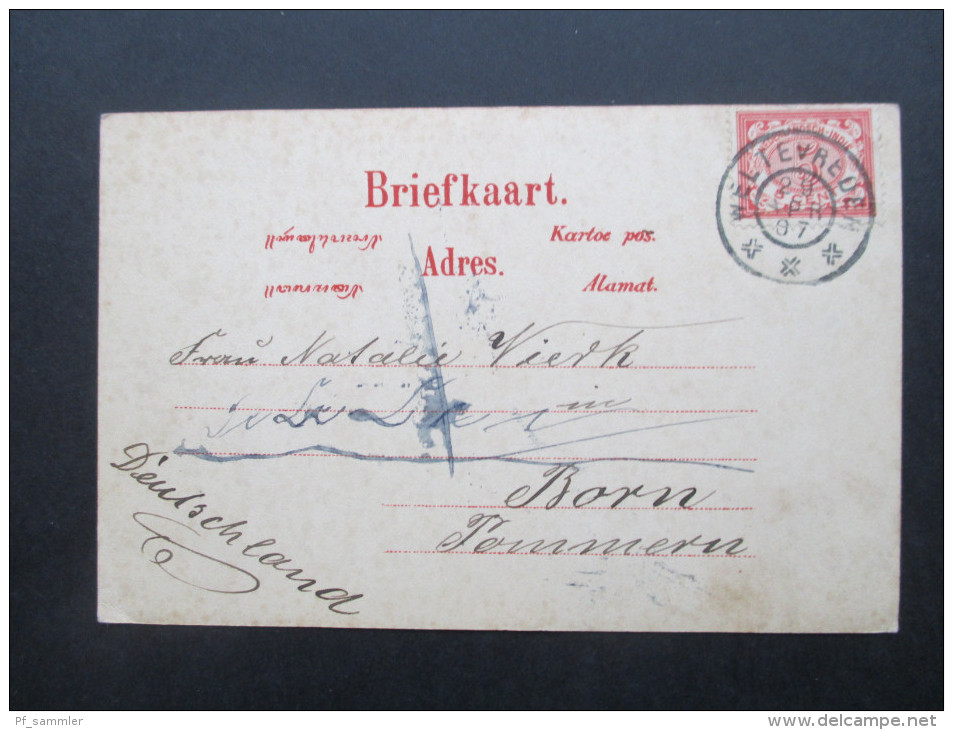 Briefkaart.
Kartoe pos.
Adres.
Alamat.
WELTEVREDEN
29
APR
07
Frau Natalie Vierk
in
Born
Pommern
Deutschland
Pf_sammler
www.delcampe.net